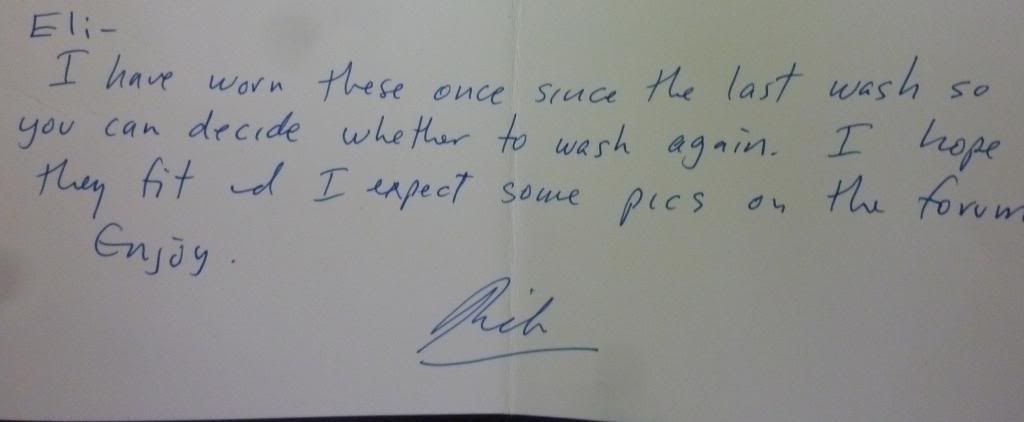 Eli-
I have worn these once since the last wash so
you can decide whether to wash again. I hope
they fit and I expect some pics on the forum
Enjoy.
Rich